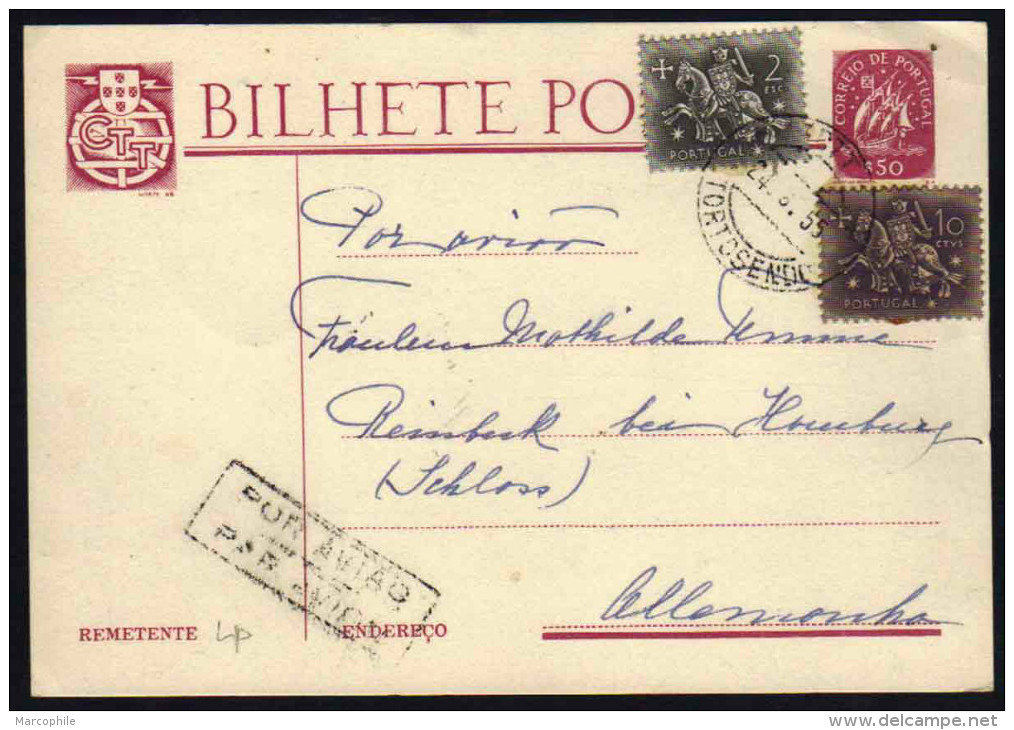 BILHETE PO
CTT
2
ESC
PORTUGAL
CORREIO DE PORTUGAL
$50
24. 55
TORTOSENDO
10
CTVS
PORTUGAL
Por avion
Fräulein Mathilde Temme
Reinbek bei Hamburg
(Schloss)
POR AVIÃO
PAR AVION
Allemanha
REMETENTE
ENDEREÇO
Marcophile
delcampe.net